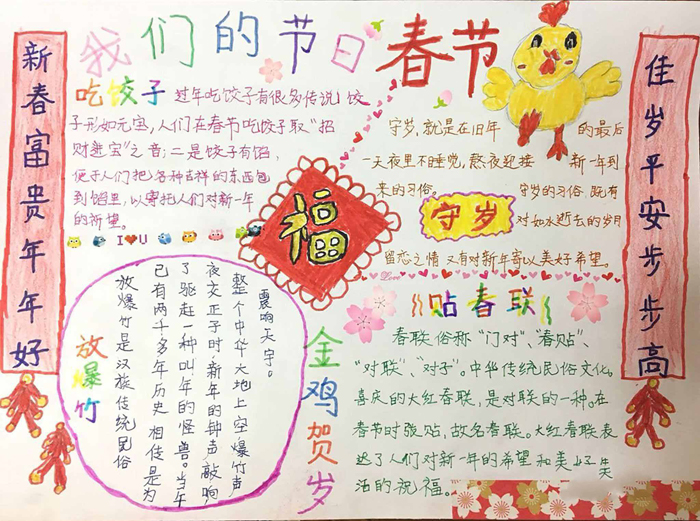 我们的节日 春节
新春富贵年年好
佳岁平安步步高
吃饺子
过年吃饺子有很多传说,饺
子形如元宝,人们在春节吃饺子取"招
财进宝"之音;二是饺子有馅,
便于人们把各种吉祥的东西包
到馅里,以寄托人们对新一年
的祈望。
I U
守岁,就是在旧年 的最后
一天夜里不睡觉,熬夜迎接 新一年到
来的习俗。 守岁的习俗,既有
守岁
对如水逝去的岁月
留恋之情又有对新年寄以美好希望。
Love
福
放爆竹
放爆竹是汉族传统民俗
已有两千多年历史 相传是为
了驱赶一种叫年的怪兽。当午
夜交正子时,新年的钟声敲响
整个中华大地上空爆竹声
震响天宇。
金鸡贺岁
贴春联
春联俗称"门对"、"春贴"、
"对联"、"对子"。中华传统民俗文化。
喜庆的大红春联,是对联的一种。在
春节时张贴,故名春联。大红春联表
达了人们对新一年的希望和美好生
活的祝福。